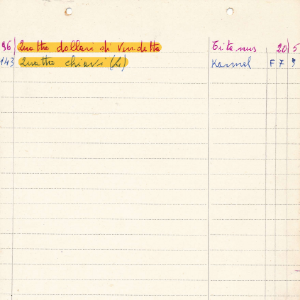 96 Quattro dollari di vendetta Titanus 20 5
143 Quattro chiavi (Le) Kamel F 7 9